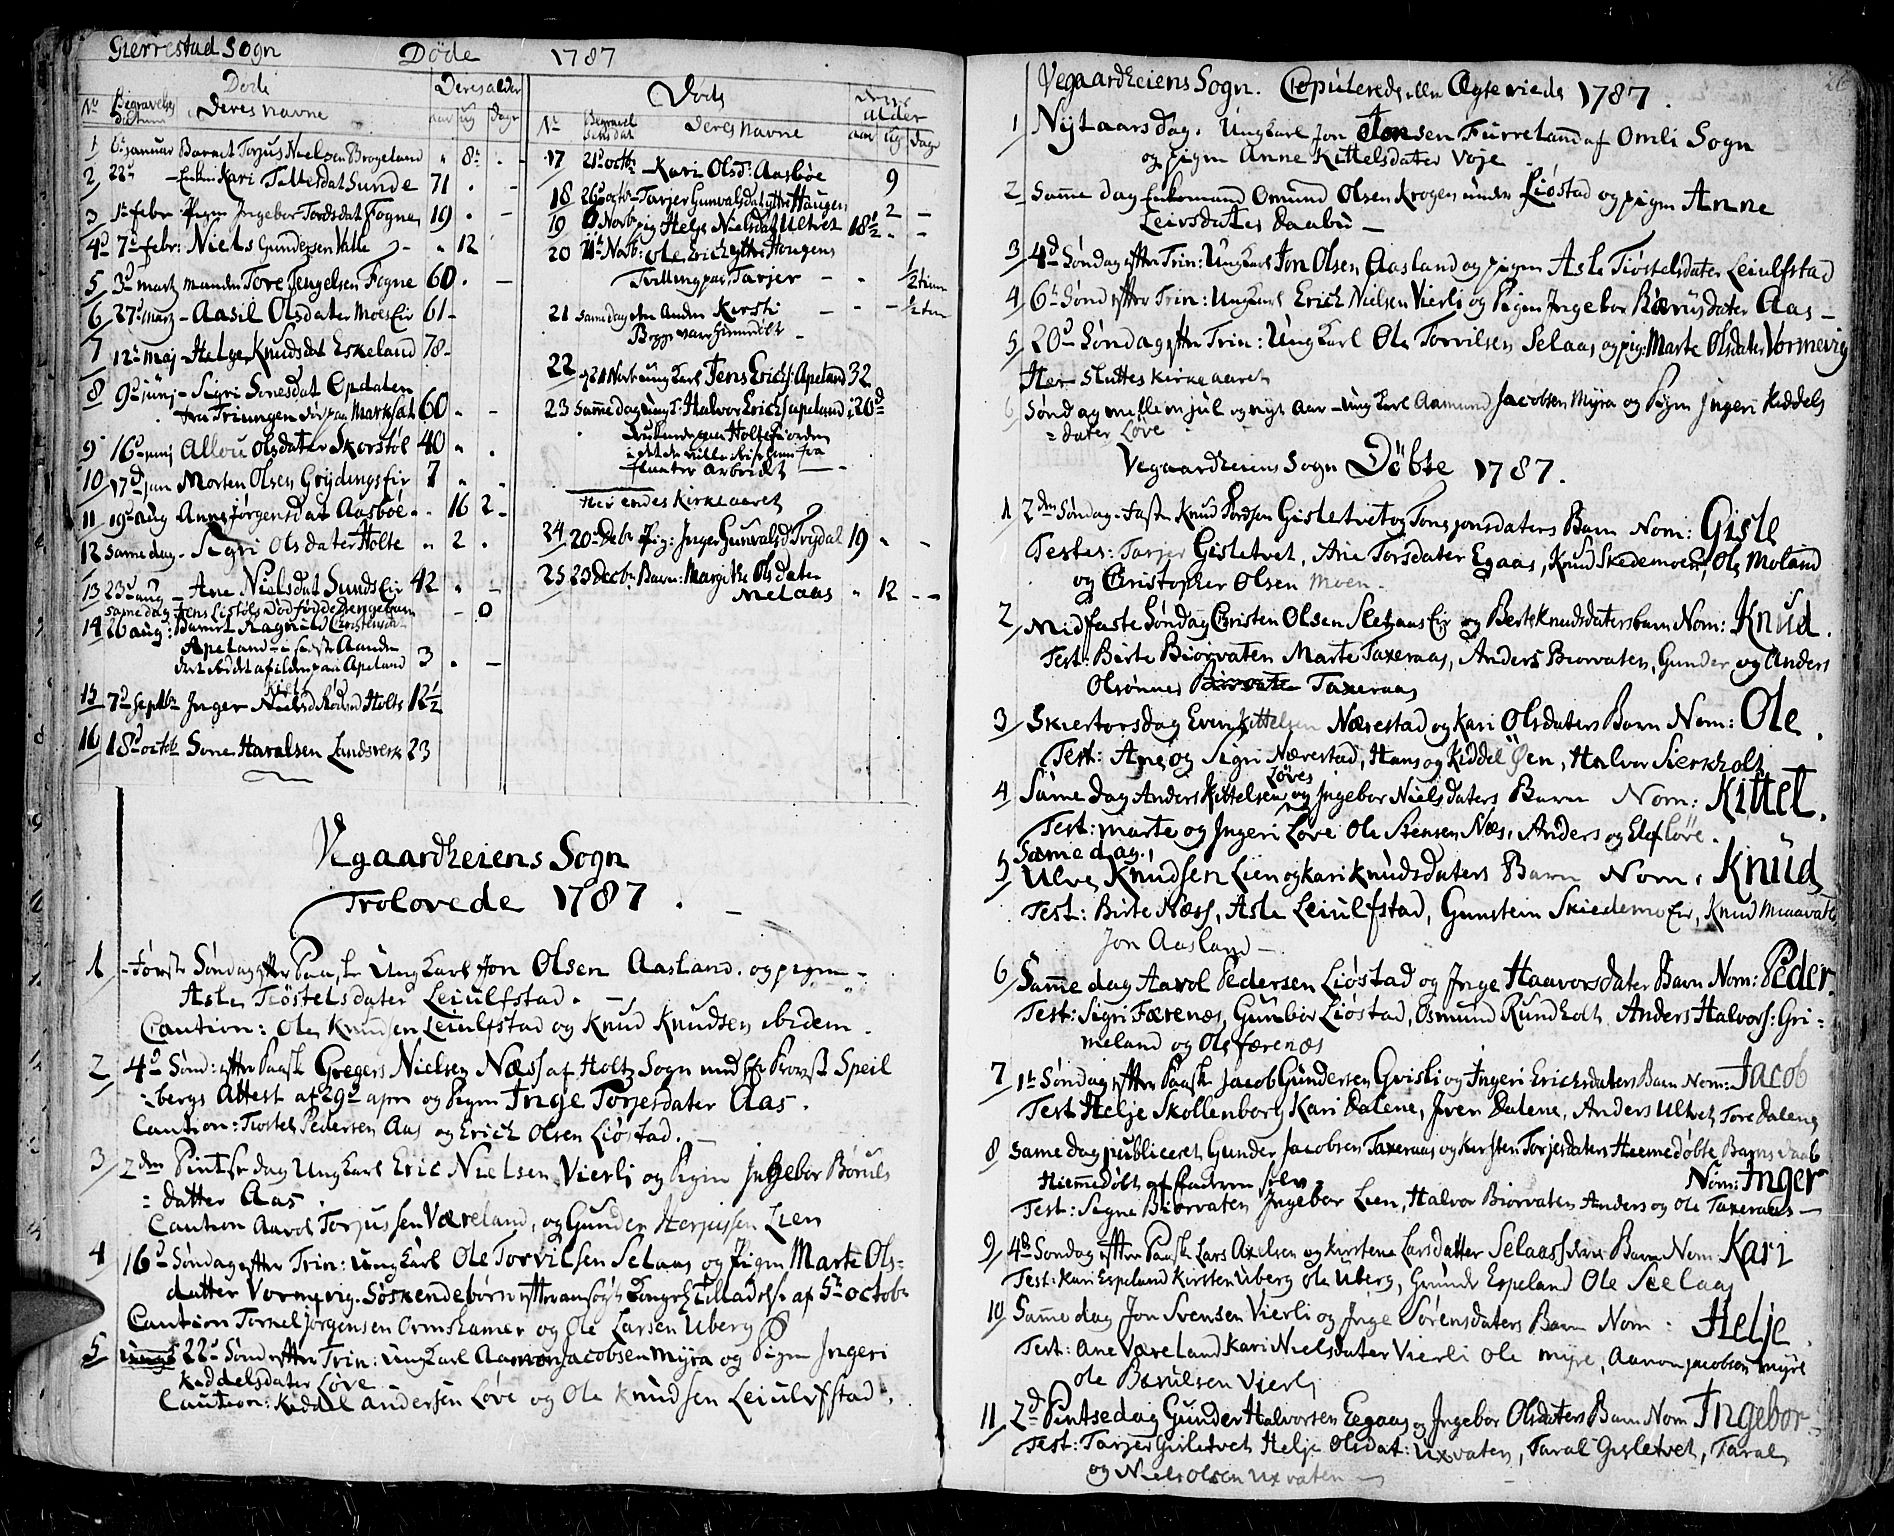 Gierrestad Sogn Døde 1787
Døde Deres alder
No Begravelses datum Deres navne aar ug dage
1 6t Januar Barnet Torjus Nielsen Brogeland " 8t " -
2 22d - Enken Kari Tellefsdat Sunde 71 . -
3 1ste Febr Pigen Ingebor Tordsdat Fogne 19 . -
4d 7de Febr: Niels Gundersen Valle - " 12
5 3d martz manden Tore Tengelsen Fogne 60 . -
6 27d martz - Aasil Olsdater Moes Eir 61 -
7 12t maj - Helge Knudsdat Eskeland 78 -
8 9d junj - Sigri Sonesdat Opdalen
60 - -
9 16d junj Allou Olsdater Skorstøl 40 " .
10 17d jun Morten Olsen Grydings Eir 7 " -
11 19d aug Anne Jørgensdat Aasbøe . 16 2 -
12 samedag - Sigri Olsdater Holte " 2 .
13 23d aug - Ane Nielsdat Sunds Eir 42 " -
samedag Jens Listøls Dødfødde Drengebarn - 0
14 26 aug: Barnet Ragnild Christensd
Apeland
Apeland 3 . -
15 7d septbr Inger Nielsd Holte 12½
16 18d octobr Sone Haralsen Landsverk 23
Døde deres alder
No Begravelsesdat Deres navne aar ug dage
17 21d octbr - Kari Olsd: Aasbøe 9
18 26d octbr - Tarjer Gunvalsdat yttre Haugen 2 -
19 Novbr pig Helje Nielsdat Ulvet 18½ - -
20 11t Novb: Ole Erichs yttre Hougens
Tvillingpar Tarjer - - ½ time
21 samedag den Anden Kersti - - ½ tim
Begge vare hiemdøbt -
22 Novbr ung karl Jens Erichs: Apeland 32
23 samme dag ung k: Halvor Erichs apeland i 26d
Druknede paa Holtefiorden
fra
arbeidet - -
Her endes Kirkeaaret
24 20de Debr Pig: Inger Gunvalsd Trydal 19 " -
25 23 Decbr Barn: Margithe Olsdater
Melaas " 12 - -
Vegaardheiens Sogn
Trolovede 1787.
1 - Første Søndag efter Paaske Ung karl Jon Olsen Aasland. og pigen -
Asle Tiøstelsdater Leiulfstad. -
Caution: Ole Knudsen Leiulfstad og Knud Knudsen ibidem.
2 4d Sønd: efter Paaske Gregers Nielsen Næss af Holtz Sogn med Er Provst Speil
=bergs Attest af 29d apri og Pigen Inge Torjesdater Aas.
Caution: Tiostel Pedersen Aas og Erich Olsen Liøstad. -
3 2den Pintsedag Ung karl Eric Nielsen Vierli og Pigen Ingebor Boruls
=datter Aas.
Caution Aavol Torjussen Væreland, og Gunder Herjussen Lien
4 16d Søndag efter Trin: ung karl Ole Torvilsen Selaas og Pigen Marte Ols=
datter Vormevig. Søskendebørn efter ansøgt Kongel Tilladelse af 5te octobr
Caution Torkel Jørgensen Ormskamer og Ole Larsen Uberg
5 22d Sønd efter Trin: ung karl Aamon Jacobsen Myra og Pigen Ingeri
Kiddelsdater Løve
Caution: Kiddel Andersen Løve og Ole Knudsen Leiulvfstad.
Vegaardheiens Sogn. Copulerede eller Ægteviede 1787.
1 Nytaarsdag. Ung karl Jon Jonsen Furreland af Omli Sogn
og pigen Anne Kittelsdater Voje
2 Samme dag Enkemand Omund Olsen Krogen under Liøstad og pigen Anne
Leivsdater Daabu -
3 4d Søndag efter Trin: Ung karl Jon Olsen Aasland og pigen Asle Tiøstelsdater Leiulfstad
4 6t Sønd efter Trin: Ung karl Erich Nielsen Vierli og Pigen Ingebor Børrusdater Aas -
5 20d Søndag efter Trin: Ung karl Ole Torvilsen Selaas og pig: Marte Olsdater Vormevig
Her Sluttes kirkeaaret
6 Søndag mellem jul og nyt Aar - ung karl Aamund Jacobsen Myra og Pigen Ingeri Kiddels
=dater Løve
Vegaardheiens Sogn Døbte 1787.
1 2den Søndag i Faste Knud Tordsen Gisletvet og Tone Jonsdaters Barn Nom: Gisle
Testes: Tarjer Gisletvet, Ane Torsdater Egaas, Knud Skedemoen, Ole Moland
og Christopher Olsen Moen.
2 Midfaste Søndag Christen Olsen Sletaas Eir og Berte Knudsdaters barn Nom: Knud.
Test: Birte Biorvaten Marte Taxeraas, Anders Biorvaten, Gunder og Anders
Olsønner Taxeraas
3 Skiertorsdag Even Kittelsen Nærestad og Kari Olsdaters Barn Nom: Ole.
Test: Ane og Sigri Nærestad, Hans og Kiddel Øen, Halvor Sierkholt
4 Same dag Anders Kittelsen Løves og Ingebor Nielsdaters Barn Nom: Kittel.
Test: Marte og Ingeri Løve Ole Stensen Næs, Anders og Elef Løve.
5 Same dag,
Ulve Knudsen Lien og Kari Knudsdaters Barn Nom: Knud
Test: Birte Næss, Asle Leiulfstad, Gunstein Skiedemo Eir, Knud Miaavatn
Jon Aasland -
6 Samme dag Aavol Pedersen Liøstad og Inge Haavorsdater Barn Nom: Peder.
Test: Sigri Færenæs, Gunbor Liøstad, Osmund Rundholt, Anders Halvors: Gri=
meland og Ole færenæs
7 1te Søndag efter Paaske Jacob Gundersen Gvisli og Ingeri Erichsdaters Barn Nom: Jacob
Test Helje Skollenborg Kari Dalene, Iven Dalene, Anders Ulvet Tore Dalene
8 Samme dag publiceret Gunder Jacobsen Taxeraas og Kersten Torjesdaters Hiemedøbte Barns Daab
Hiemedøbt af faderen selv. Nom: Inger
Test: Signe Biorvaten Ingebor Lien, Halvor Biorvaten Anders og Ole Taxeraas -
9 4de Søndag efter Paaske Lars Axelsen og Kirstene Larsdatter Selaas deres Barn Nom Kari
Test: Kari Espeland Kirsten Uberg Ole Uberg, Gunder Espeland Ole Seelaas
10 Samme dag Jon Svensen Vierli og Inge Sørensdaters Barn Nom: Helje.
Test: Ane Væreland Kari Nielsdater Vierli Ole Myre, Aamon Jacobsen Myre
Ole Børulsen Vierli
11 2d Pintsedag Gunder Halvorsen Eegaas og Ingebor Olsdaters Barn Nom Ingebor
Test: Tarjer Gisletvet Helje Olsdat: Uxvaten, Taral Gisletvet, Taral
og Niels Olsen Uxvaten -